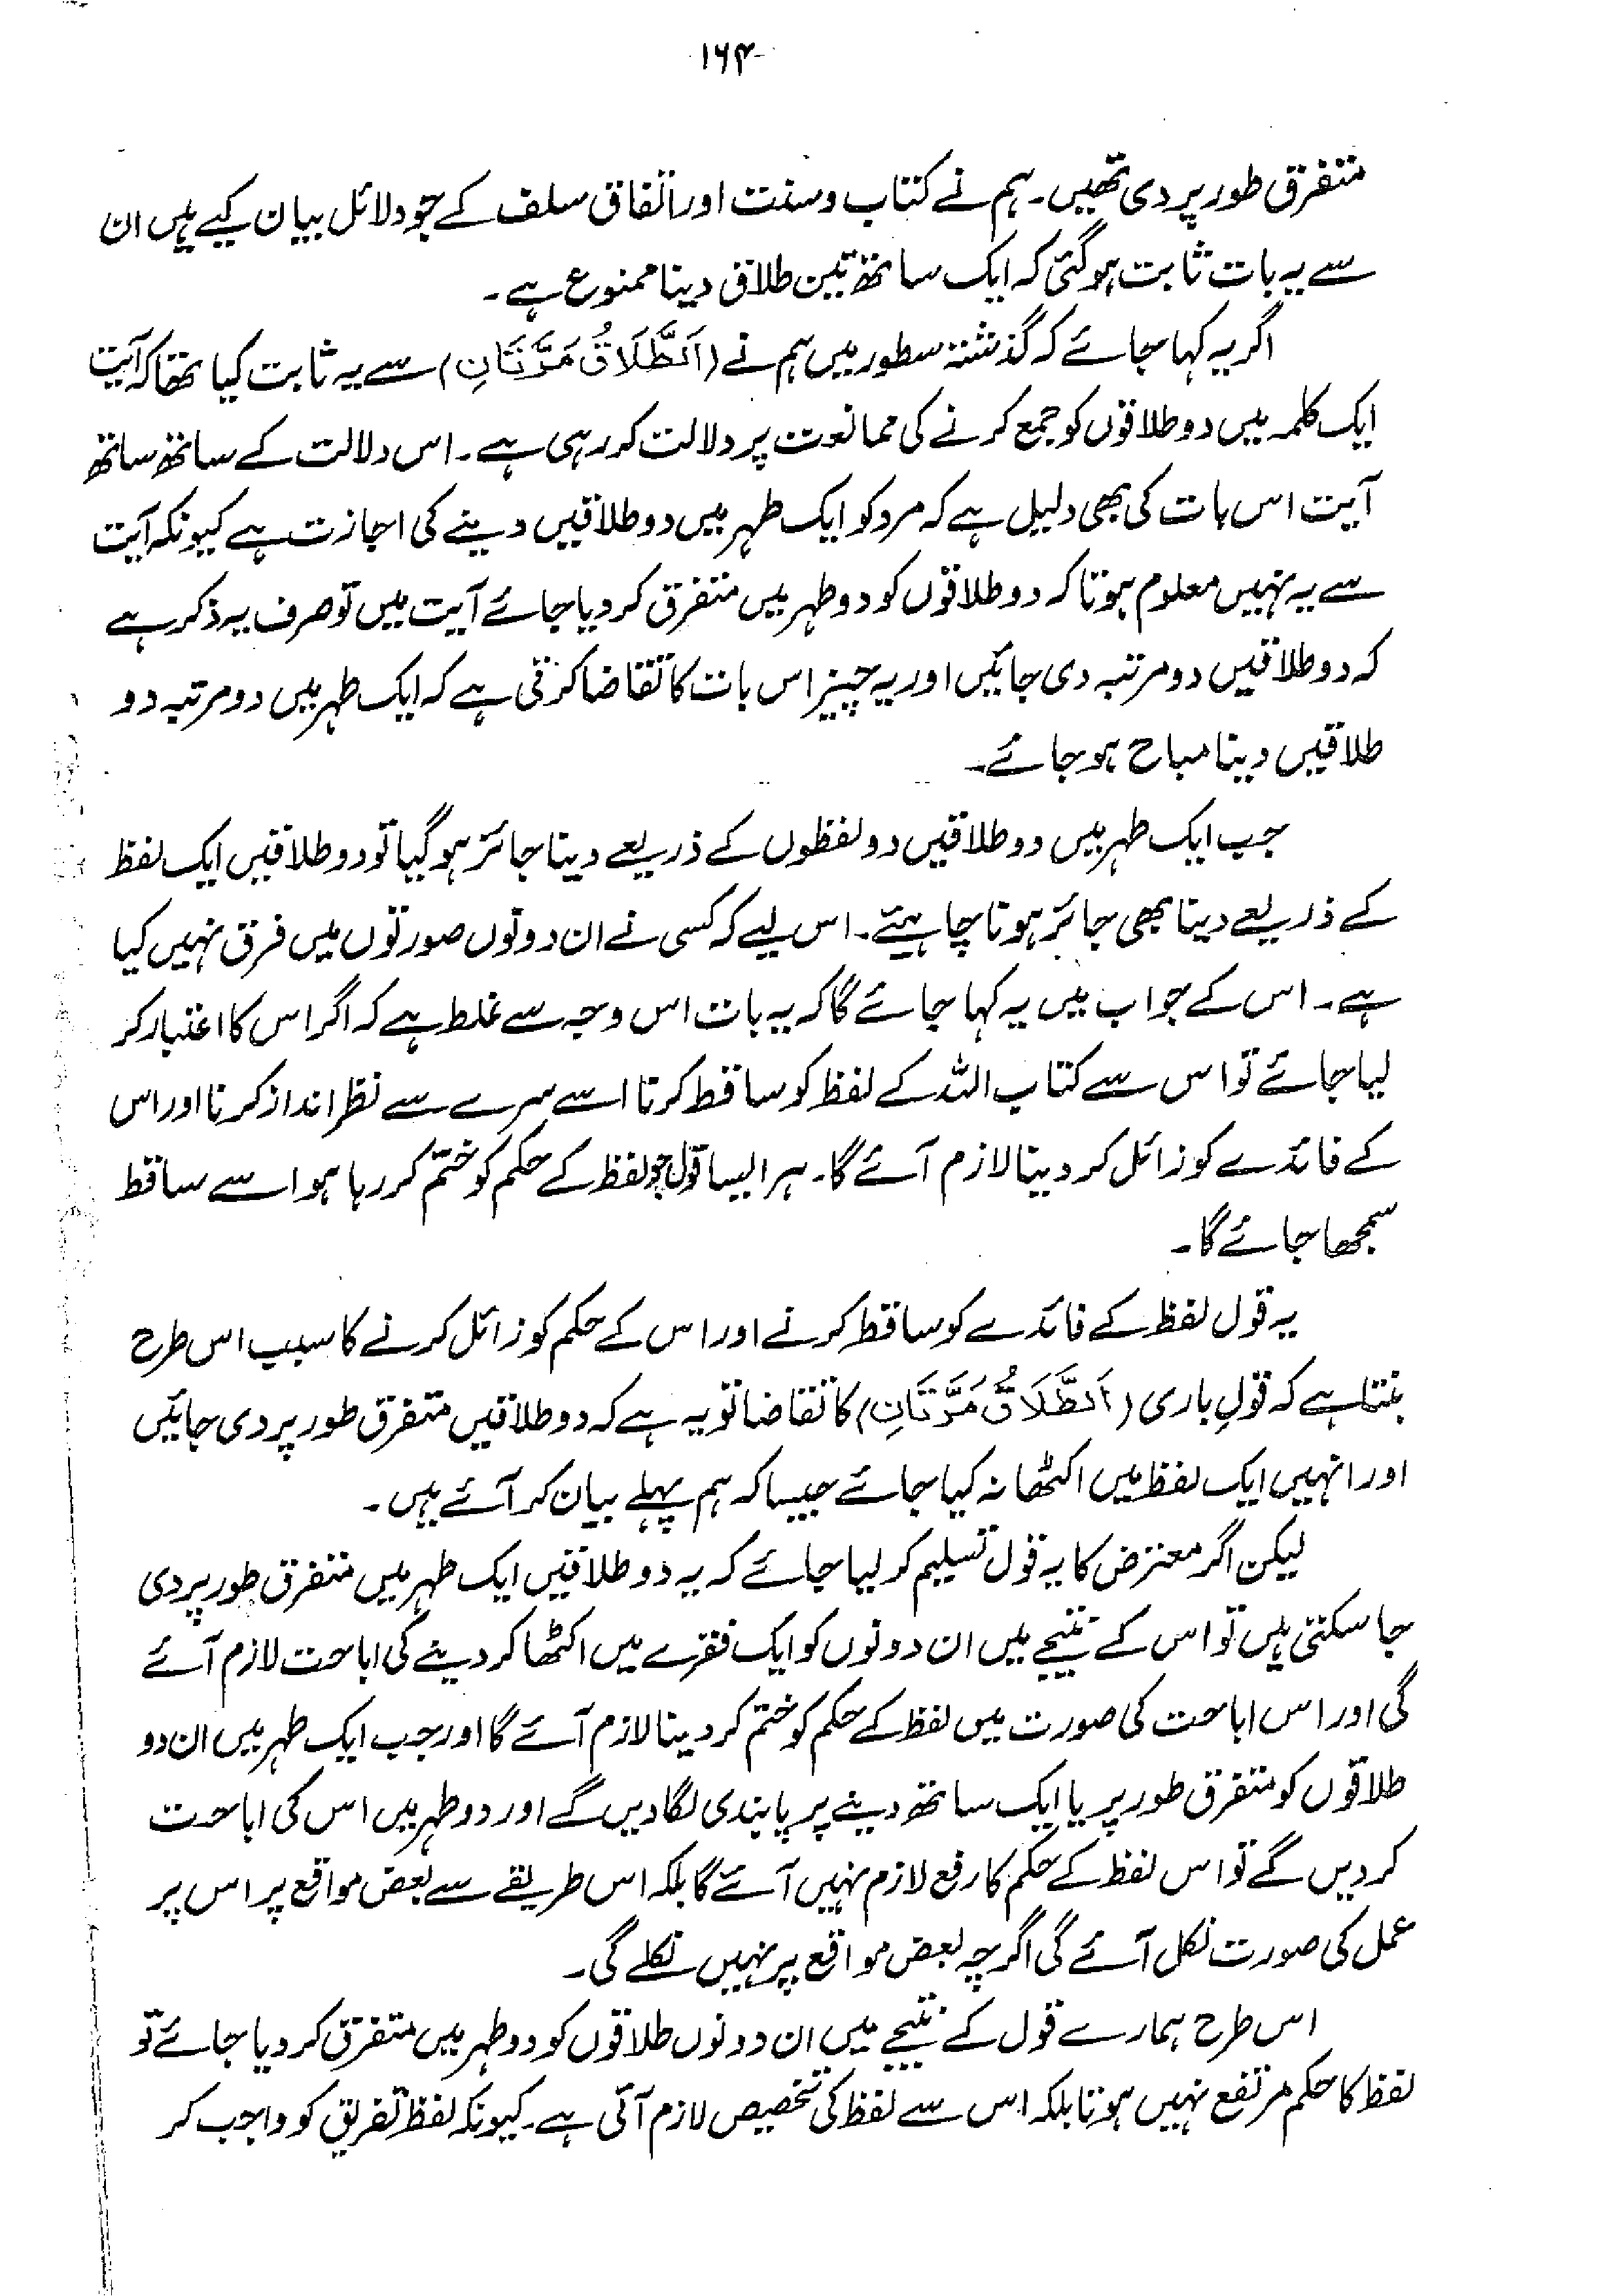 ۱۶۴
متفرق طور پر دی تھیں۔ ہم نے کتاب وسنت اور اتفاق سلف کے جو دلائل بیان کیے ہیں ان
سے یہ بات ثابت ہوگئی کہ ایک ساتھ تین طلاق دینا ممنوع ہے۔
اگر یہ کہا جائے کہ گذشتہ سطور میں ہم نے (اَلطَّلَاقُ مَرَّتَانِ) سے یہ ثابت کیا تھا کہ آیت
ایک کلمہ میں دو طلاقوں کو جمع کرنے کی ممانعت پر دلالت کر رہی ہے۔ اس دلالت کے ساتھ ساتھ
آیت اس بات کی بھی دلیل ہے کہ مرد کو ایک طہر میں دو طلاقیں دینے کی اجازت ہے کیونکہ آیت
سے یہ نہیں معلوم ہوتا کہ دو طلاقوں کو دو طہر میں متفرق کر دیا جائے آیت میں تو صرف یہ ذکر ہے
کہ دو طلاقیں دو مرتبہ دی جائیں اور یہ چیز اس بات کا تقاضا کرتی ہے کہ ایک طہر میں دو مرتبہ دو
طلاقیں دینا مباح ہو جائے۔
جب ایک طہر میں دو طلاقیں دو لفظوں کے ذریعے دینا جائز ہو گیا تو دو طلاقیں ایک لفظ
کے ذریعے دینا بھی جائز ہونا چاہیئے۔ اس لیے کہ کسی نے ان دونوں صورتوں میں فرق نہیں کیا
ہے۔ اس کے جواب میں یہ کہا جائے گا کہ یہ بات اس وجہ سے غلط ہے کہ اگر اس کا اعتبار کر
لیا جائے تو اس سے کتاب اللہ کے لفظ کو ساقط کرنا اسے سرے سے نظر انداز کرنا اور اس
کے فائدے کو زائل کر دینا لازم آئے گا۔ ہر ایسا قول جو لفظ کے حکم کو ختم کر رہا ہو اسے ساقط
سمجھا جائے گا۔
یہ قول لفظ کے فائدے کو ساقط کرنے اور اس کے حکم کو زائل کرنے کا سبب اس طرح
بنتا ہے کہ قولِ باری (اَلطَّلَاقُ مَرَّتَانِ) کا تقاضا تو یہ ہے کہ دو طلاقیں متفرق طور پر دی جائیں
اور انہیں ایک لفظ میں اکٹھا نہ کیا جائے جیسا کہ ہم پہلے بیان کر آئے ہیں۔
لیکن اگر معترض کا یہ قول تسلیم کر لیا جائے کہ یہ دو طلاقیں ایک طہر میں متفرق طور پر دی
جا سکتی ہیں تو اس کے نتیجے میں ان دونوں کو ایک فقرے میں اکٹھا کر دینے کی اباحت لازم آئے
گی اور اس اباحت کی صورت میں لفظ کے حکم کو ختم کر دینا لازم آئے گا اور جب ایک طہر میں ان دو
طلاقوں کو متفرق طور پر یا ایک ساتھ دینے پر پابندی لگا دیں گے اور دو طہر میں اس کی اباحت
کر دیں گے تو اس لفظ کے حکم کا رفع لازم نہیں آئے گا بلکہ اس طریقے سے بعض مواقع پر اس پر
عمل کی صورت نکل آئے گی اگرچہ بعض مواقع پر نہیں نکلے گی۔
اس طرح ہمارے قول کے نتیجے میں ان دونوں طلاقوں کو دو طہر میں متفرق کر دیا جائے تو
لفظ کا حکم مرتفع نہیں ہوتا بلکہ اس سے لفظ کی تخصیص لازم آتی ہے۔ کیونکہ لفظ تفریق کو واجب کر